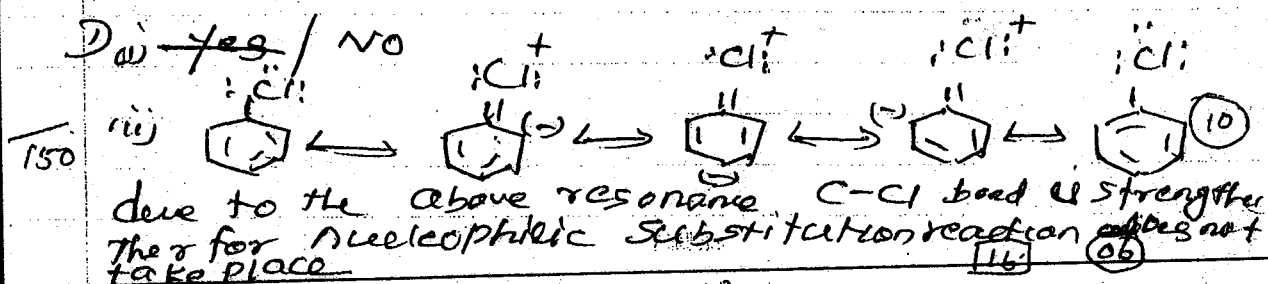 D (i) Yes / NO
:Cl: :Cl:+ :Cl:+ :Cl:+ :Cl:
150 (ii) (-) (-) (10)
(-)
due to the above resonance C-Cl bond is strengther
ther for nucleophilic substitution reaction does not
take place 16 06